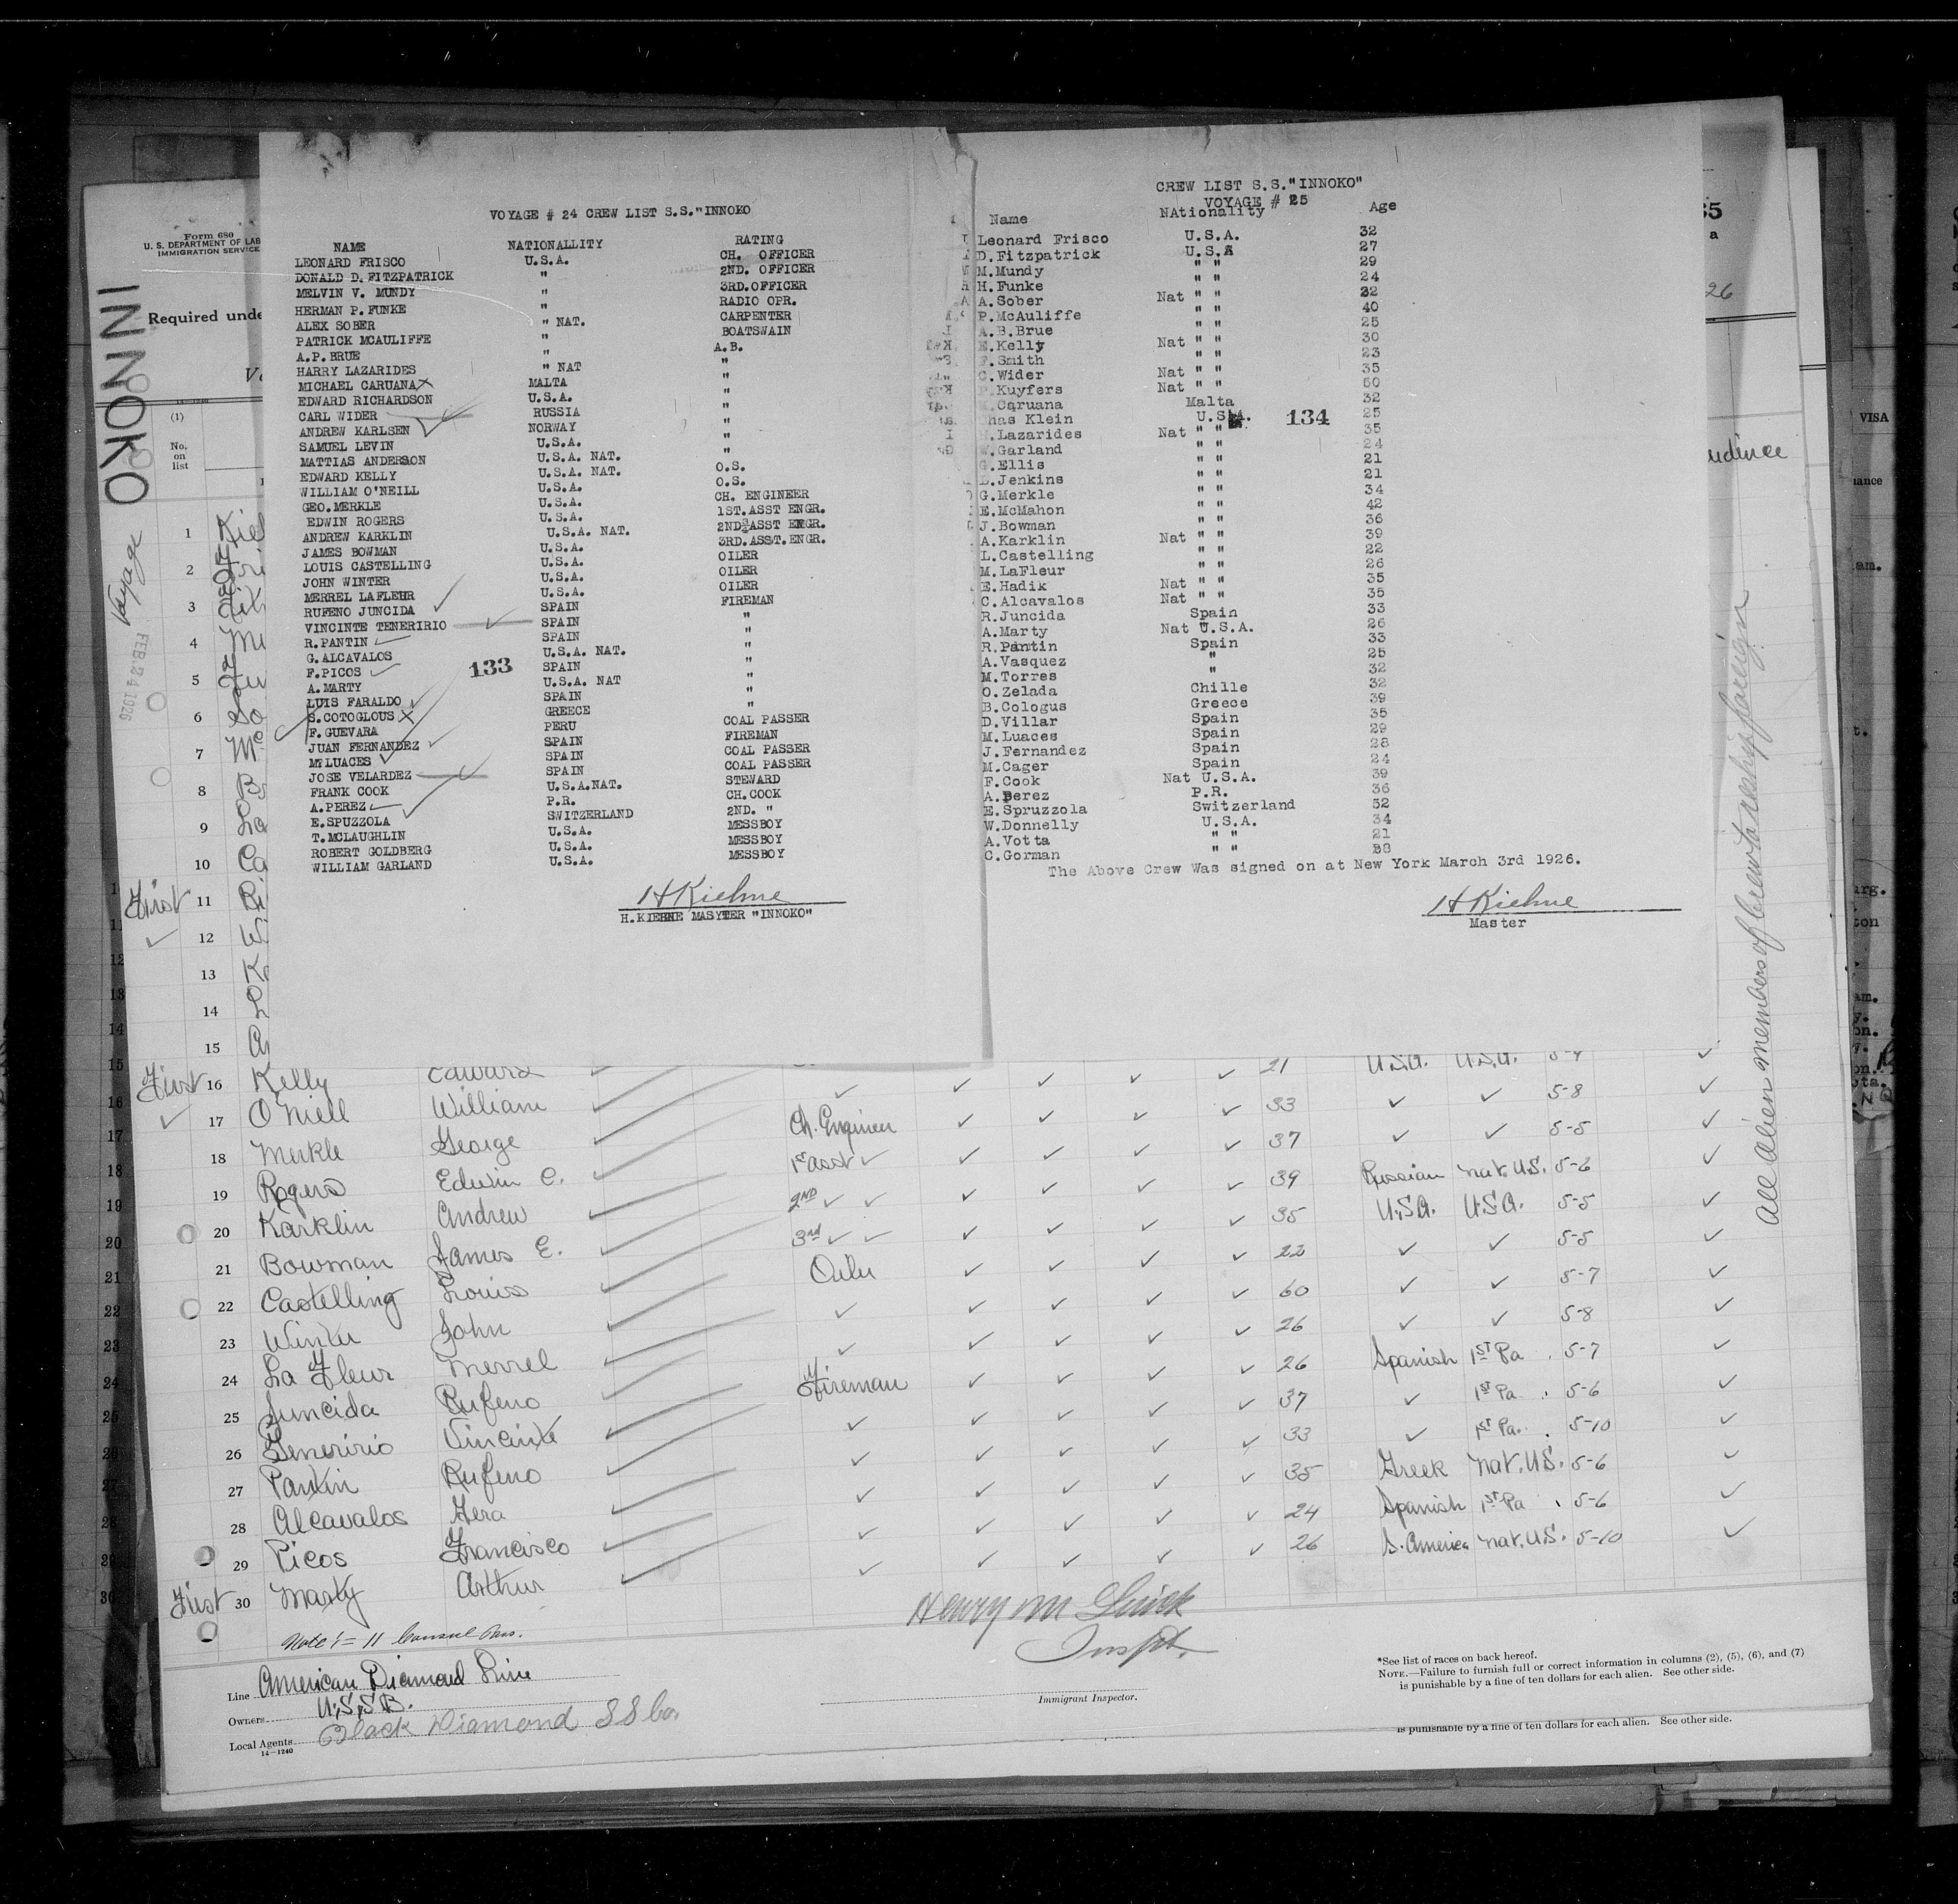 Form 680
U. S. DEPARTMENT OF LAB
IMMIGRATION SERVICE
INNOKO
Required unde
Voyage
FEB. 24 1926
(1)
No.
on
list
VOYAGE # 24 CREW LIST S.S."INNOKO
NAME NATIONALLITY RATING
LEONARD FRISCO U.S.A. CH. OFFICER
DONALD D. FITZPATRICK " 2ND. OFFICER
MELVIN V. MUNDY " 3RD.OFFICER
HERMAN P. FUNKE " RADIO OPR.
ALEX SOBER " NAT. CARPENTER
PATRICK MCAULIFFE " BOATSWAIN
A.P.BRUE " A.B.
HARRY LAZARIDES " NAT "
MICHAEL CARUANA MALTA "
EDWARD RICHARDSON U.S.A. "
CARL WIDER RUSSIA "
ANDREW KARLSEN NORWAY "
SAMUEL LEVIN U.S.A. "
MATTIAS ANDERSON U.S.A. NAT. "
EDWARD KELLY U.S.A. NAT. O.S.
WILLIAM O'NEILL U.S.A. O.S.
GEO.MERKLE U.S.A. CH. ENGINEER
EDWIN ROGERS U.S.A. 1ST.ASST ENGR.
ANDREW KARKLIN U.S.A. NAT. 2ND ASST ENGR.
JAMES BOWMAN U.S.A. 3RD.ASST.ENGR.
LOUIS CASTELLING U.S.A. OILER
JOHN WINTER U.S.A. OILER
MERREL LAFLEUR U.S.A. OILER
RUFENO JUNCIDA SPAIN FIREMAN
VINCINTE TENERIRIO SPAIN "
R.PANTIN SPAIN "
G.ALCAVALOS U.S.A. NAT. "
F.PICOS 133 SPAIN "
A.MARTY U.S.A. NAT "
LUIS FARALDO SPAIN "
S.COTOGLOUS GREECE "
F.GUEVARA PERU COAL PASSER
JUAN FERNANDEZ SPAIN FIREMAN
M.LUACES SPAIN COAL PASSER
JOSE VELARDEZ SPAIN COAL PASSER
FRANK COOK U.S.A.NAT. STEWARD
A.PEREZ P.R. CH.COOK
E.SPUZZOLA SWITZERLAND 2ND. "
T.MCLAUGHLIN U.S.A. MESSBOY
ROBERT GOLDBERG U.S.A. MESSBOY
WILLIAM GARLAND U.S.A. MESSBOY
H Kiehne
H.KIEHNE MASYTER "INNOKO"
CREW LIST S.S."INNOKO"
VOYAGE # 25
Name NAtionality Age
Leonard Frisco U.S.A. 32
D.Fitzpatrick U.S.A 27
M.Mundy " " 29
H.Funke " " 24
A.Sober Nat " " 32
P.McAuliffe " " 40
A.B.Brue " " 25
E.Kelly Nat " " 30
F.Smith " " 23
C.Wider Nat " " 35
Kuyfers Nat " " 50
Caruana Malta 32
has Klein U.S.A. 134 25
Lazarides Nat " " 35
W.Garland " " 24
G.Ellis " " 21
Jenkins " " 21
G.Merkle " " 34
E.McMahon " " 42
J.Bowman " " 36
A.Karklin Nat " " 39
L.Castelling " " 22
M.LaFleur " " 26
E.Hadik Nat " " 35
C.Alcavalos Nat " " 35
R.Juncida Spain 33
A.Marty Nat U.S.A. 26
R.Pantin Spain 33
A.Vasquez " 25
M.Torres " 32
O.Zelada Chille 32
B.Cologus Greece 39
D.Villar Spain 35
M.Luaces Spain 29
J.Fernandez Spain 28
M.Cager Spain 24
F.Cook Nat U.S.A. 39
A.Perez P.R. 36
E.Spruzzola Switzerland 52
W.Donnelly U.S.A. 34
A.Votta " " 21
C.Gorman " "
The Above Crew Was signed on at New York March 3rd 1926.
H Kiehne
Master
VISA
All Alien members of Crew to reship foreign
1 Kie
2
3
4 Me
5 Fu
6 So
7 Mc
8 Br
9 La
10 Ca
First 11 Ri
12 Wi
13 Ka
14 L
15 An
First 16 Kelly Edward 21 U.S.A. U.S.A. 5-9
17 O'Niell William 33 5-8
18 Merkle George Ch. Engineer 37 5-5
19 Rogers Edwin C. 1st asst 39 Russian nat. U.S. 5-6
20 Karklin Andrew 2ND 35 U.S.A. U.S.A. 5-5
21 Bowman James E. 3rd 22 5-5
22 Castelling Louis Oiler 60 5-7
23 Winter John 26 5-8
24 La Fleur Merrel 26 Spanish 1ST Pa 5-7
25 Juncida Rufeno Fireman 37 1ST Pa 5-6
26 Teneririo Vincinte 33 1ST Pa. 5-10
27 Pantin Rufeno 35 Greek nat. U.S. 5-6
28 Alcavalos Gera 24 Spanish 1ST Pa 5-6
29 Picos Francisco 26 S. America nat. U.S. 5-10
First 30 Marty Arthur
Henry M
Inspt.
Line American Diamond Line
Owners U.S.S.B.
Local Agents Black Diamond SS Co.
14—1240
Immigrant Inspector.
*See list of races on back hereof.
NOTE.—Failure to furnish full or correct information in columns (2), (5), (6), and (7)
is punishable by a fine of ten dollars for each alien. See other side.
is punishable by a fine of ten dollars for each alien. See other side.